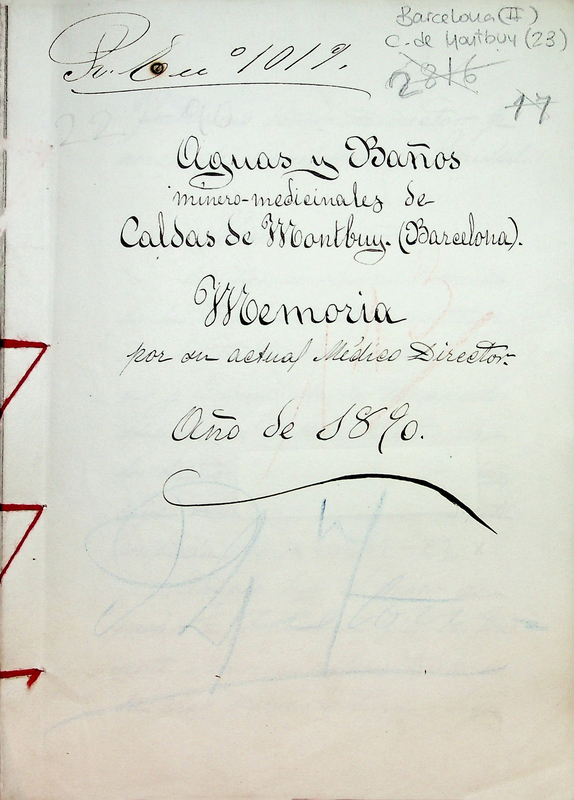 Barcelona (II)
C. de Montbuy (23)
2816
17
nº 1019.
Aguas y Baños
minero-medicinales de
Caldas de Montbuy. (Barcelona).
Memoria
por su actual Médico Director.
Año de 1890.